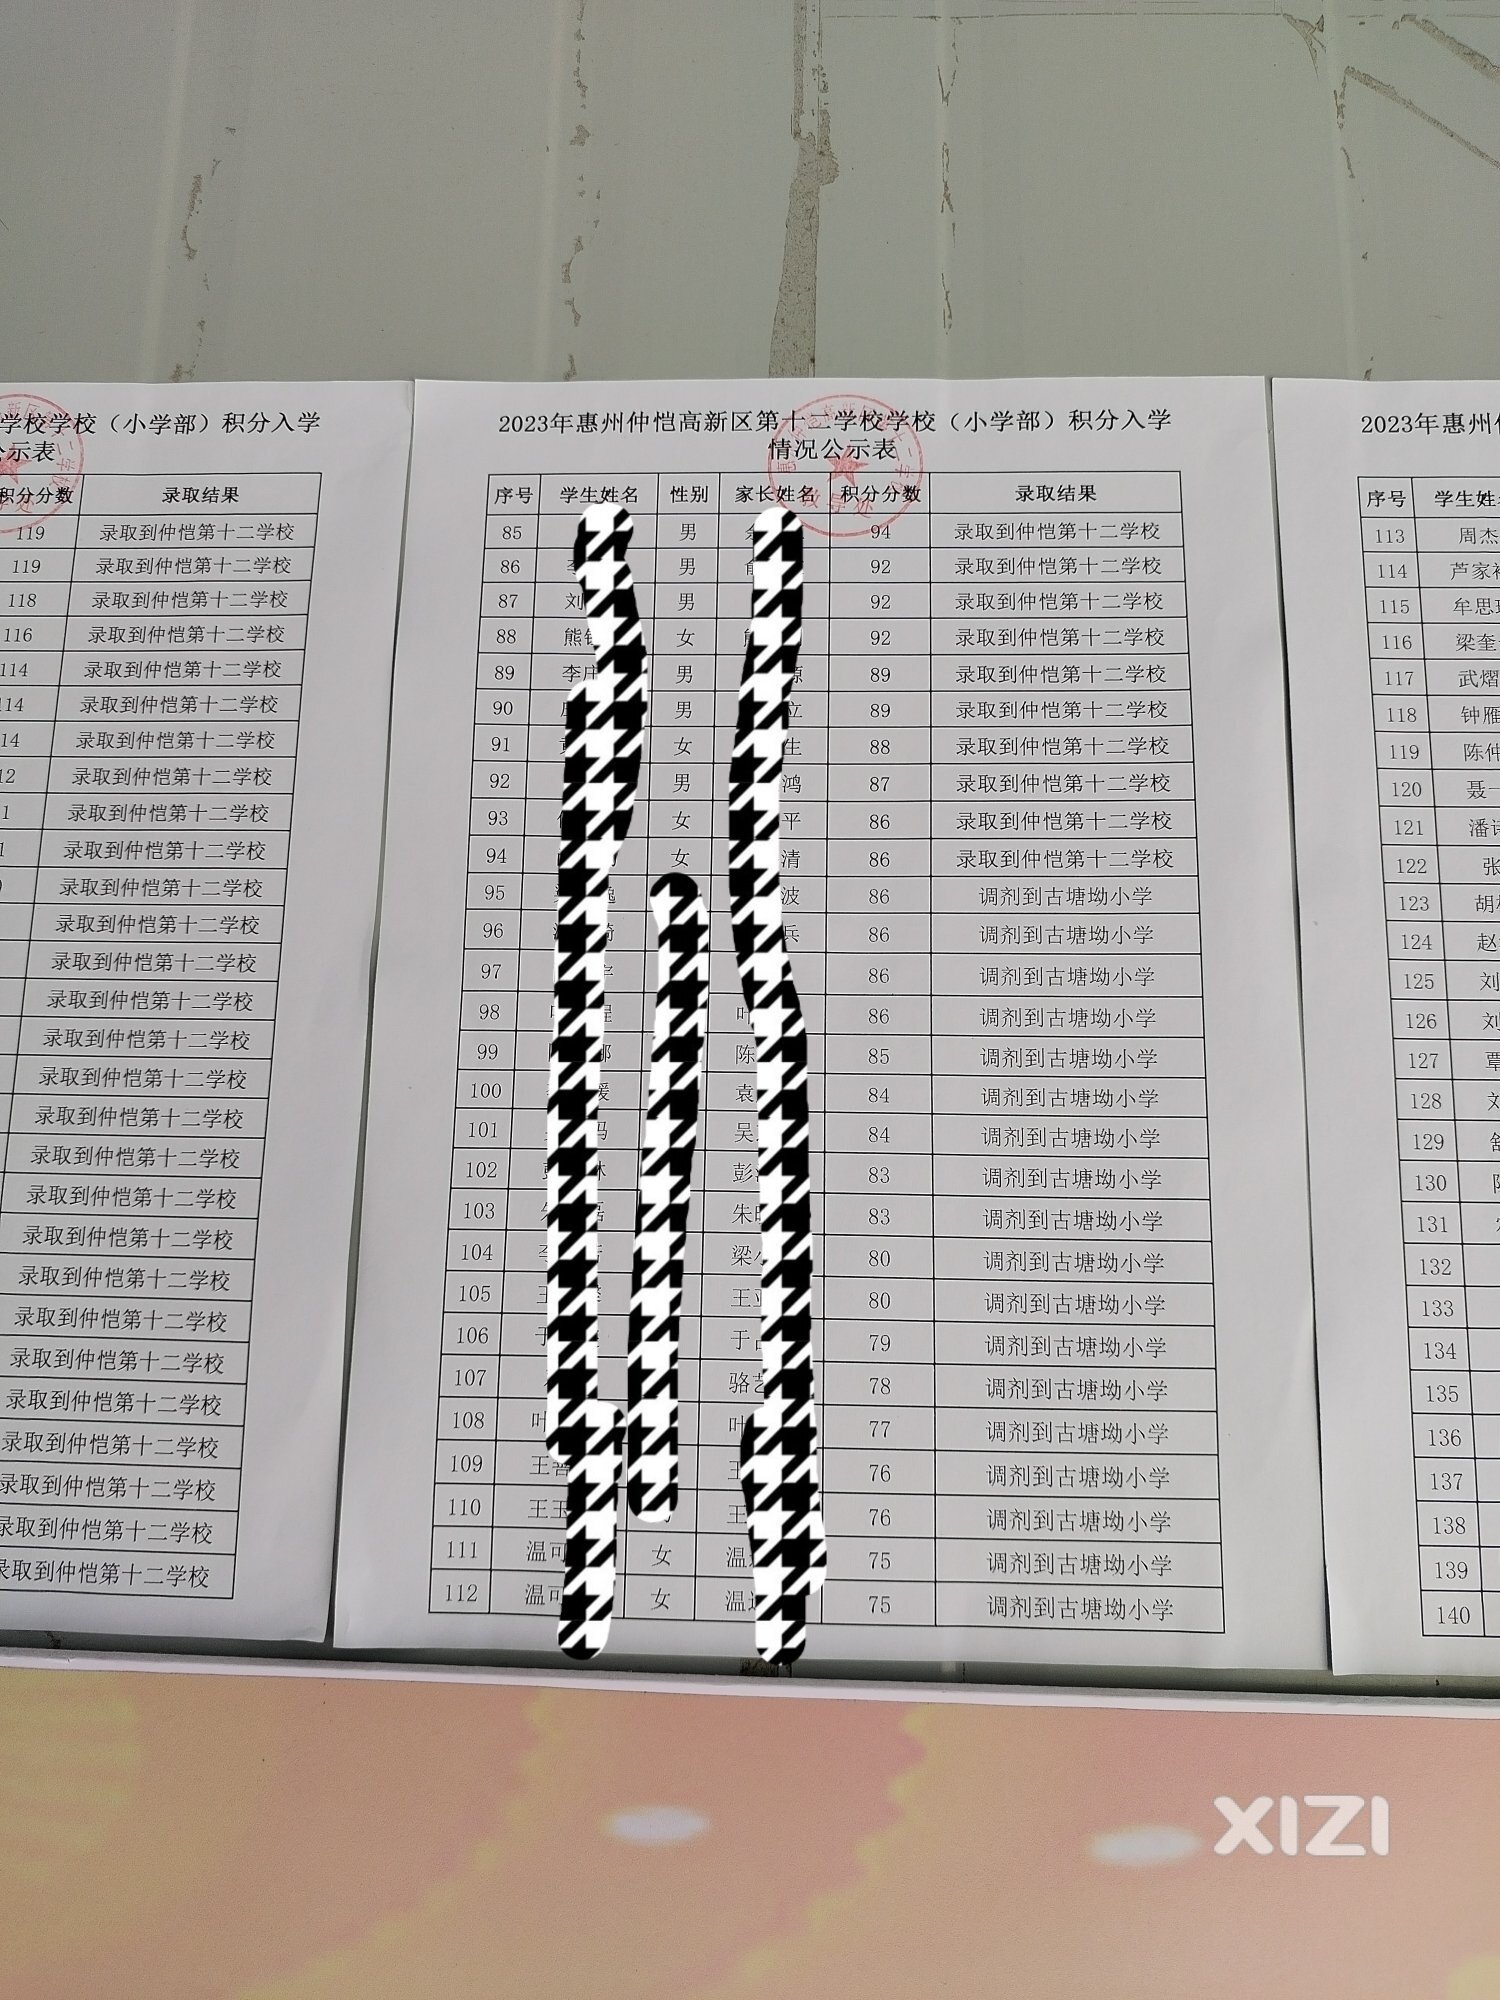 学校学校（小学部）积分入学
公示表
积分分数 录取结果
119 录取到仲恺第十二学校
119 录取到仲恺第十二学校
118 录取到仲恺第十二学校
116 录取到仲恺第十二学校
114 录取到仲恺第十二学校
14 录取到仲恺第十二学校
14 录取到仲恺第十二学校
12 录取到仲恺第十二学校
1 录取到仲恺第十二学校
录取到仲恺第十二学校
录取到仲恺第十二学校
录取到仲恺第十二学校
录取到仲恺第十二学校
录取到仲恺第十二学校
录取到仲恺第十二学校
录取到仲恺第十二学校
录取到仲恺第十二学校
录取到仲恺第十二学校
录取到仲恺第十二学校
录取到仲恺第十二学校
录取到仲恺第十二学校
录取到仲恺第十二学校
录取到仲恺第十二学校
录取到仲恺第十二学校
录取到仲恺第十二学校
录取到仲恺第十二学校
录取到仲恺第十二学校
录取到仲恺第十二学校
2023年惠州仲恺高新区第十二学校学校（小学部）积分入学
情况公示表
序号 学生姓名 性别 家长姓名 积分分数 录取结果
85 男 94 录取到仲恺第十二学校
86 男 92 录取到仲恺第十二学校
87 刘 男 92 录取到仲恺第十二学校
88 熊 女 92 录取到仲恺第十二学校
89 李 男 源 89 录取到仲恺第十二学校
90 男 立 89 录取到仲恺第十二学校
91 女 生 88 录取到仲恺第十二学校
92 男 鸿 87 录取到仲恺第十二学校
93 女 平 86 录取到仲恺第十二学校
94 女 清 86 录取到仲恺第十二学校
95 逸 波 86 调剂到古塘坳小学
96 兵 86 调剂到古塘坳小学
97 86 调剂到古塘坳小学
98 程 叶 86 调剂到古塘坳小学
99 陈 85 调剂到古塘坳小学
100 袁 84 调剂到古塘坳小学
101 吴 84 调剂到古塘坳小学
102 彭 83 调剂到古塘坳小学
103 朱 83 调剂到古塘坳小学
104 梁 80 调剂到古塘坳小学
105 王 王 80 调剂到古塘坳小学
106 于 于 79 调剂到古塘坳小学
107 骆艺 78 调剂到古塘坳小学
108 叶 叶 77 调剂到古塘坳小学
109 王 王 76 调剂到古塘坳小学
110 王玉 王 76 调剂到古塘坳小学
111 温可 女 温 75 调剂到古塘坳小学
112 温可 女 温 75 调剂到古塘坳小学
2023年惠州
序号 学生姓
113 周杰
114 芦家
115 牟思
116 梁奎
117 武熠
118 钟雁
119 陈仲
120 聂一
121 潘
122 张
123 胡
124 赵
125 刘
126 刘
127 覃
128 刘
129 舒
130
131
132
133
134
135
136
137
138
139
140
教导处
XIZI